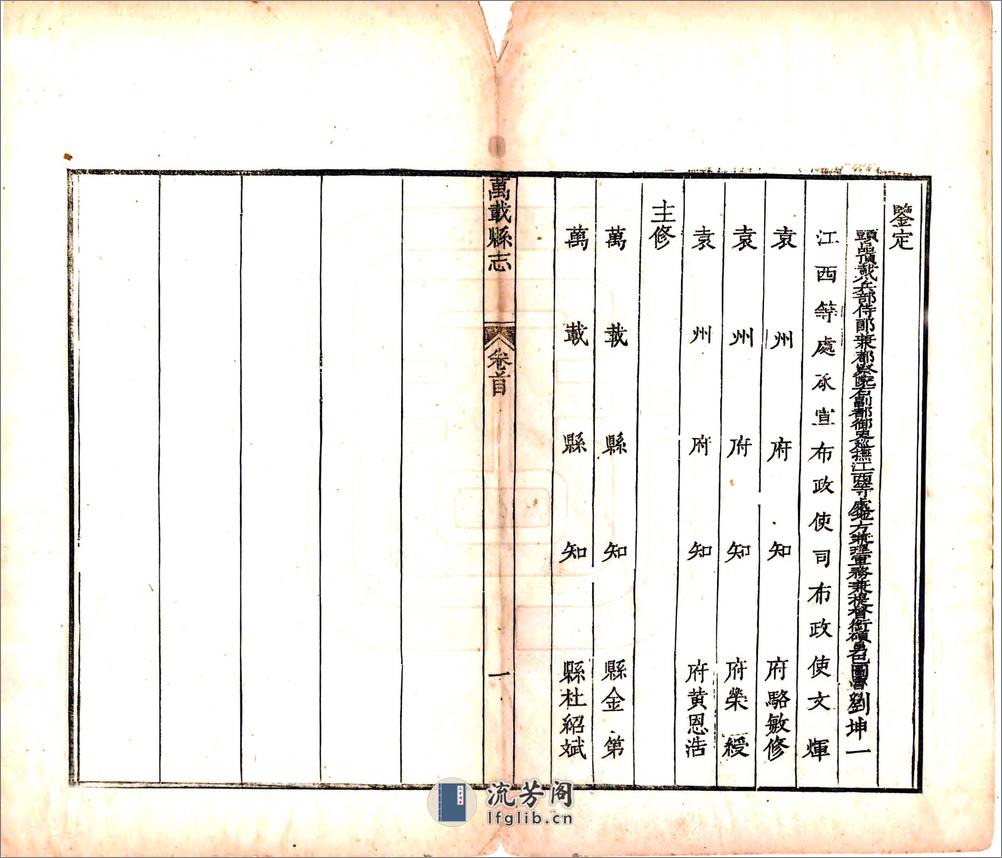 鑒定
頭品頂戴兵部侍郎兼都察院右副都御史巡撫江西等處地方兼理軍務兼提督銜碩勇巴圖魯劉坤一
江西等處承宣布政使司布政使文輝
袁州府知府駱敏修
袁州府知府欒綬
袁州府知府黃恩浩
主修
萬載縣知縣金第
萬載縣知縣杜紹斌
萬載縣志
卷首
一
流芳阁
lfglib.cn